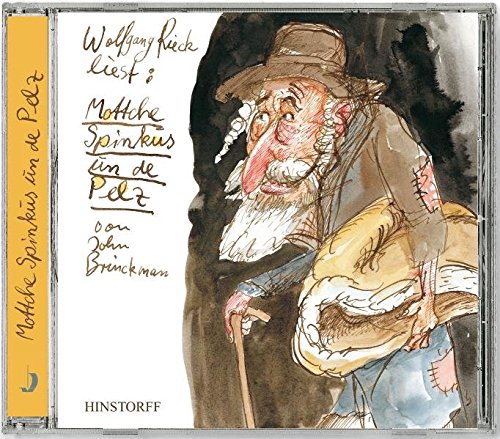 Wolfgang Rieck
liest:
Mottche
Spinkus
un de
Pelz
von
John
Brinckman
HINSTORFF
Mottche Spinkus un de Pelz